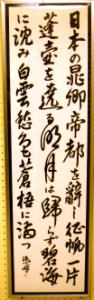 日本の晁卿帝都を辞し征帆一片
蓬壺を遶る明月は歸らず碧海
に沈み白雲愁色蒼梧に満つ